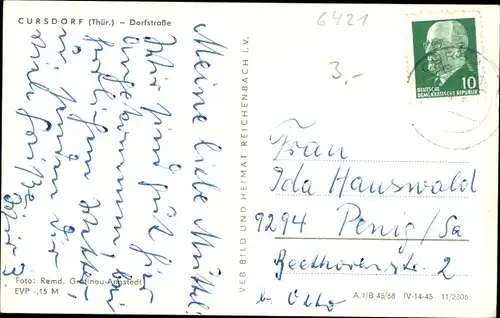 CURSDORF (Thür.) – Dorfstraße
6421
3,-
10
DEUTSCHE
DEMOKRATISCHE REPUBLIK
Meine liebe Mutter!
Wir sind gut hier
angekommen, bei
herrlichem Wetter.
wir senden dir
viele Grüße
Foto: Remd. Gräfinau-Angstedt
EVP -,15 M
VEB BILD UND HEIMAT REICHENBACH I. V.
Frau
Ida Hauswald
9294 Penig/Sa
Beethovenstr. 2
b. Otto
A 1/B 45/68 IV-14-45 11/2306